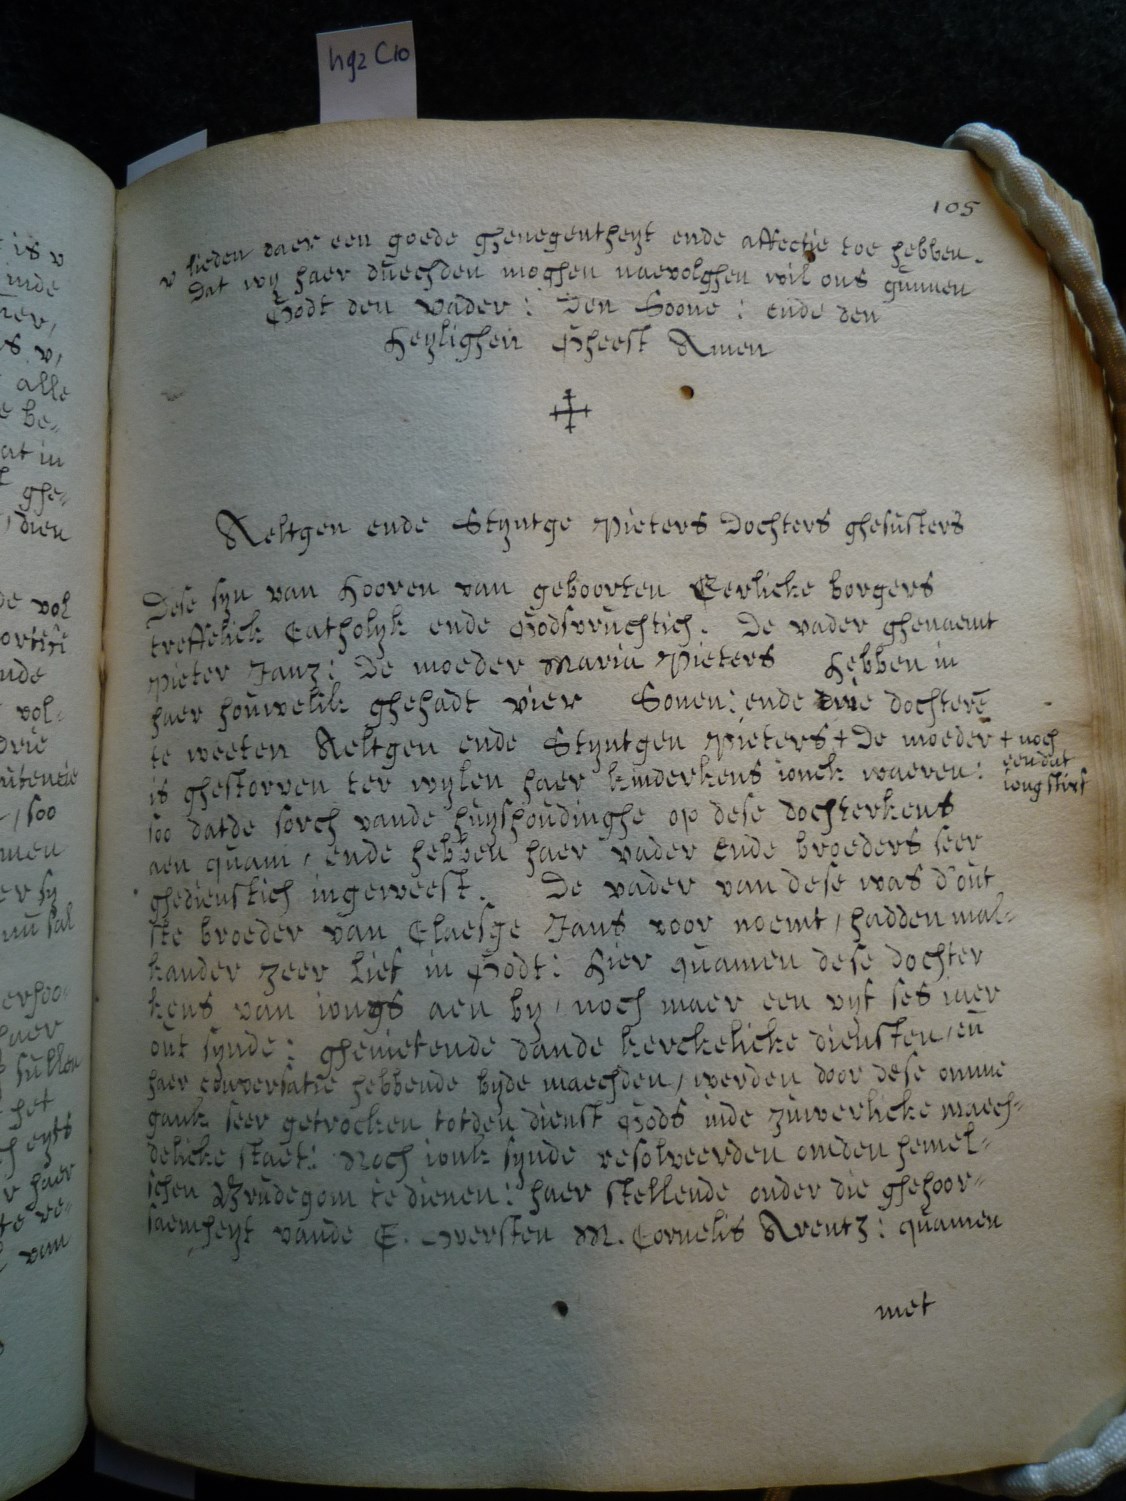 hg2 C10
105
v lieden daer een goede ghenegentheyt ende affectie toe hebben.
Dat wy haer duechden moghen naevolghen wil ons gunnen
Godt den Vader: Den Soone: ende den
Heylighen Gheest Amen
Aeltgen ende Styntge Pieters Dochters ghesusters
Dese syn van Hooren van geboorten Eerlicke borgers
treffelick Catholyk ende Godsvruchtich. De vader ghenaemt
Pieter Janz: De moeder Maria Pieters hebben in
haer houwelik ghehadt vier Sonen: ende drie dochterē
te weeten Aeltgen ende Styntgen Pieters + De moeder
+ noch
een dat
iong stirf
is ghestorven ter wylen haer kinderkens ionck waeren:
soo datde sorch vande huyshoudinghe op dese dochterkens
aen quam, ende hebben haer vader ende broeders seer
ghedienstich in geweest. De vader van dese was d'out
ste broeder van Claesge Jans voor noemt, hadden mal-
kander zeer lief in Godt: Hier quamen dese dochter
kens van iongs aen by, noch maer een vyf ses iaer
out synde: ghenietende dande kerckelicke diensten, eñ
haer conversatie hebbende byde maechden, werden door dese omme
gank seer getrocken totden dienst Gods inde zuwerlicke maech-
delicke staet: Noch ionk synde resolveerden omden hemel-
schen Brudegom te dienen: haer stellende onder die ghehoor-
saemheyt vande E. Oversten M. Cornelis Arentz: quamen
met
is v
inde
alle
be-
at in
ghe-
dien
de vol
ende
vol-
drie
soo
er sy
haer
sullen
het
haer
van